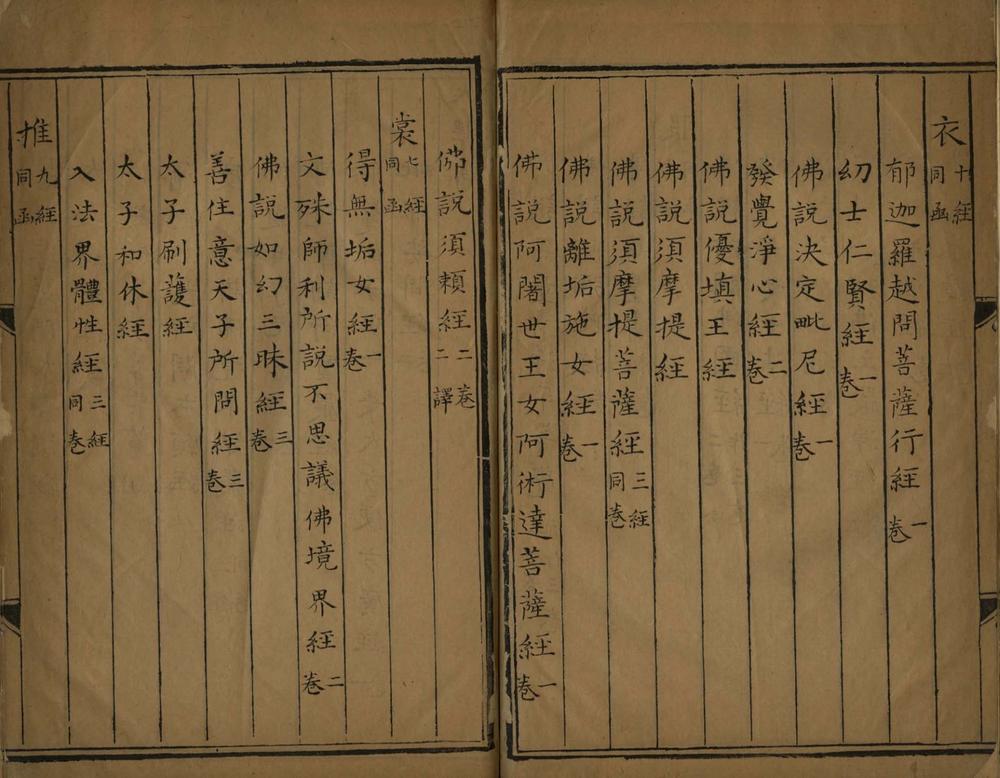 衣十經同函
郁迦羅越問菩薩行經一卷
幻士仁賢經一卷
佛說決定毗尼經一卷
發覺淨心經二卷
佛說優填王經
佛說須摩提經
佛說須摩提菩薩經三經同卷
佛說離垢施女經一卷
佛說阿闍世王女阿術達菩薩經一卷
佛說須賴經二卷二譯
裳七經同函
得無垢女經一卷
文殊師利所說不思議佛境界經二卷
佛說如幻三昧經三卷
善住意天子所問經三卷
太子刷護經
太子和休經
入法界體性經三經同卷
推九經同函